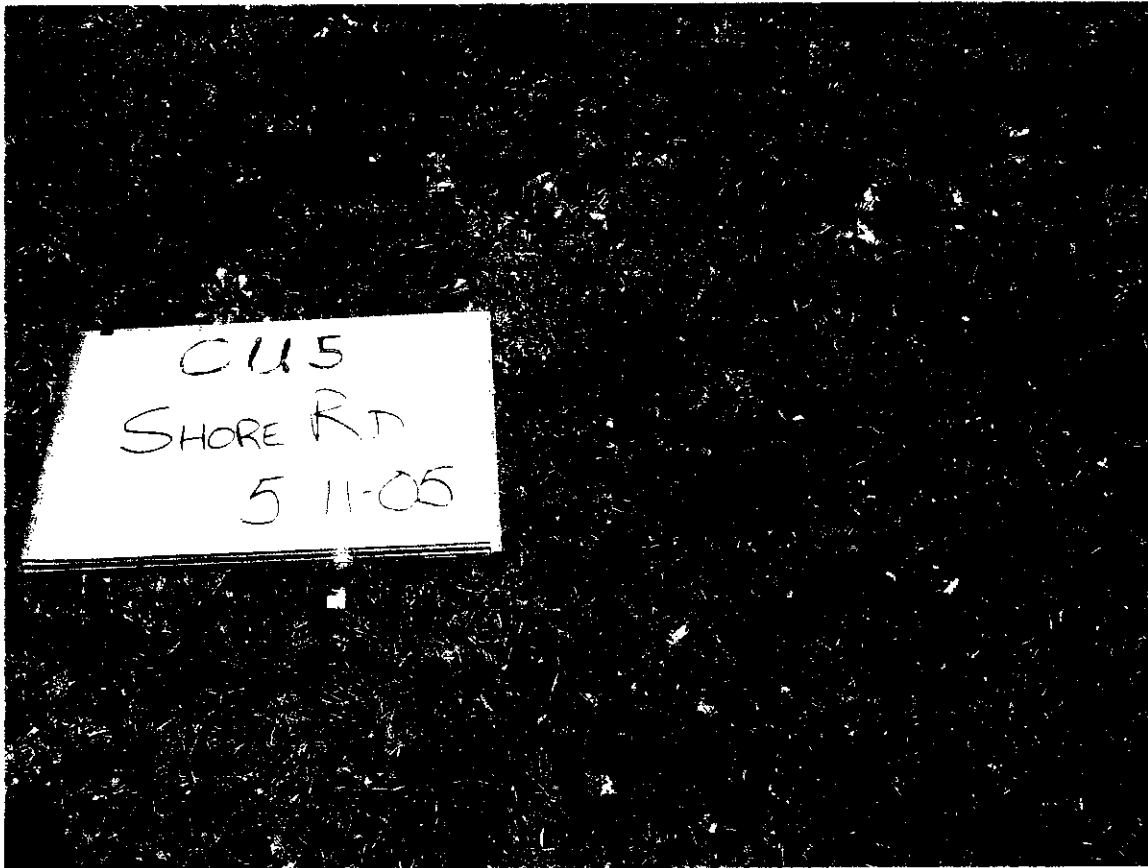 CU5
SHORE RD
5 11-05